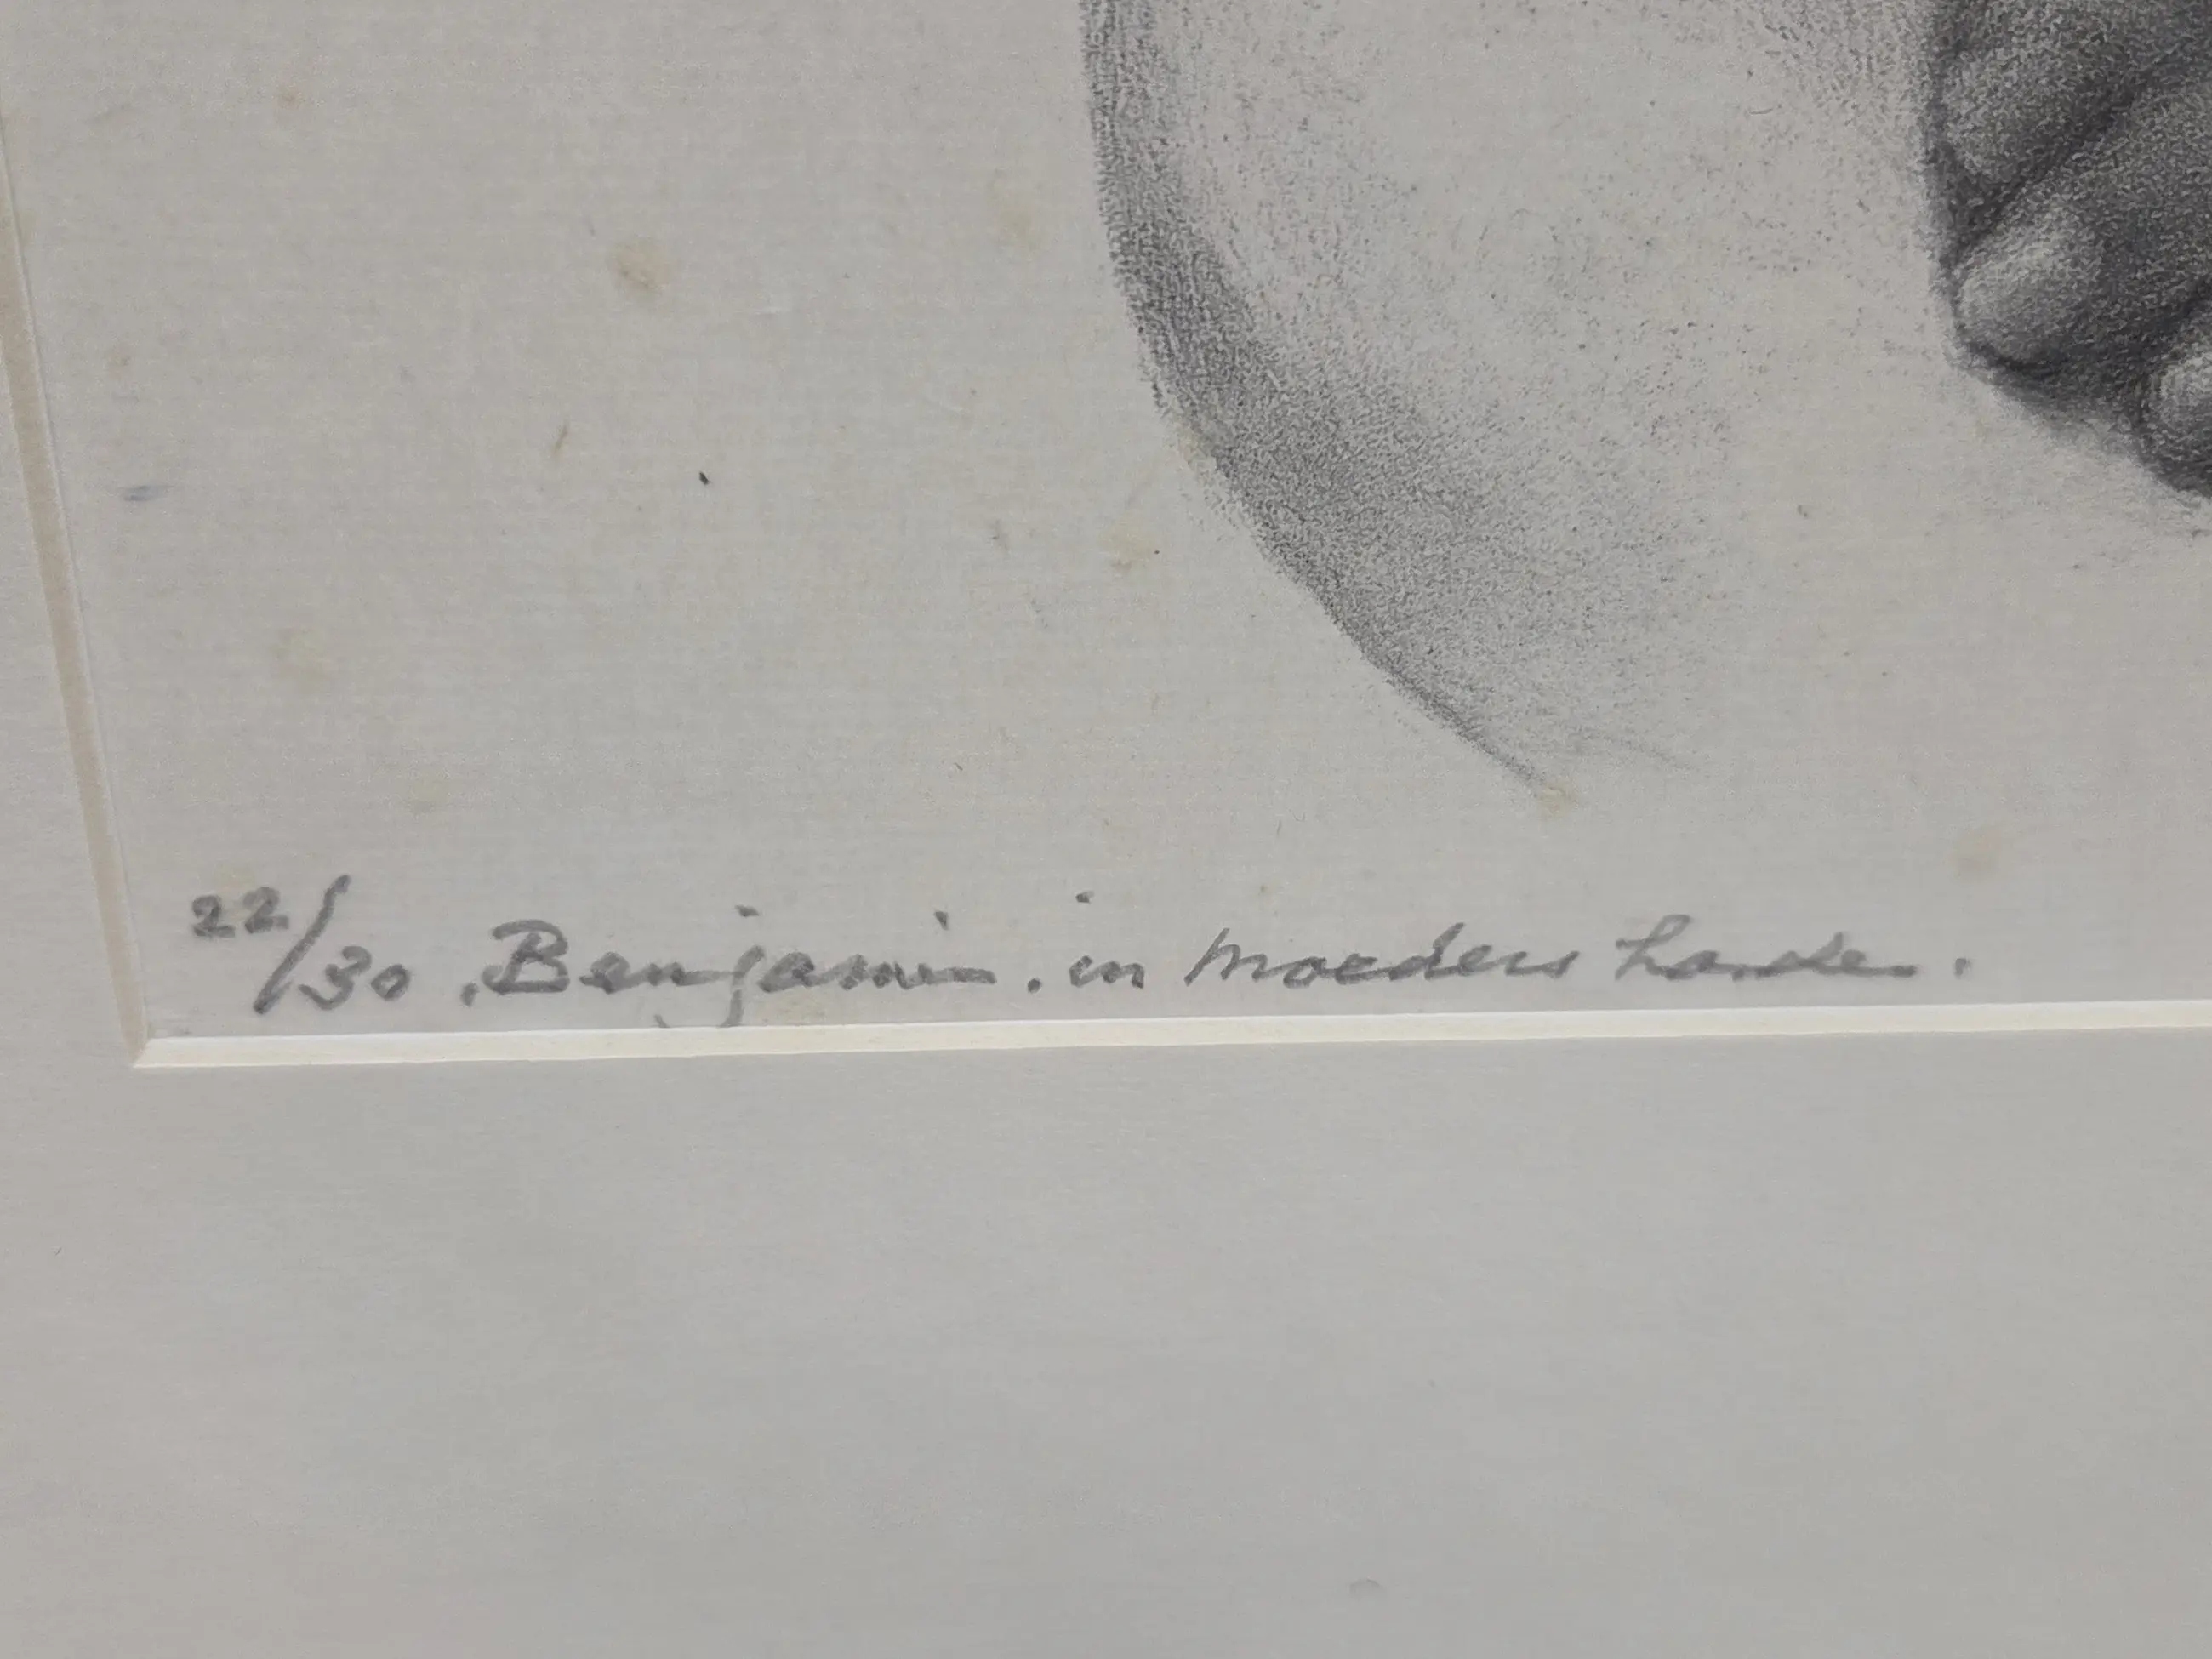 22/30 . Benjamin . in moeders handen .